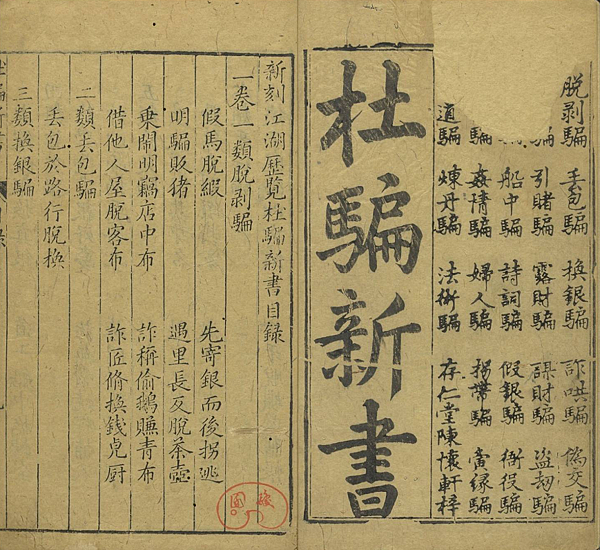 脫剥騙 丟包騙 換銀騙 詐哄騙 偽交騙
騙 引賭騙 露財騙 謀財騙 盜劫騙
騙 船中騙 詩詞騙 假銀騙 衙役騙
騙 姦情騙 婦人騙 拐帶騙 夤緣騙
道騙 煉丹騙 法術騙 存仁堂陳懷軒梓
杜騙新書
新刻江湖歷覽杜騙新書目錄
一卷一類脫剥騙
假馬脫緞 先寄銀而後拐逃
明騙販猪 遇里長反脫茶壺
乘鬧明竊店中布 詐稱偷鵝賺青布
借他人屋脫客布 詐匠脩換錢皃厨
二類丟包騙
丟包於路行脫換
三類換銀騙